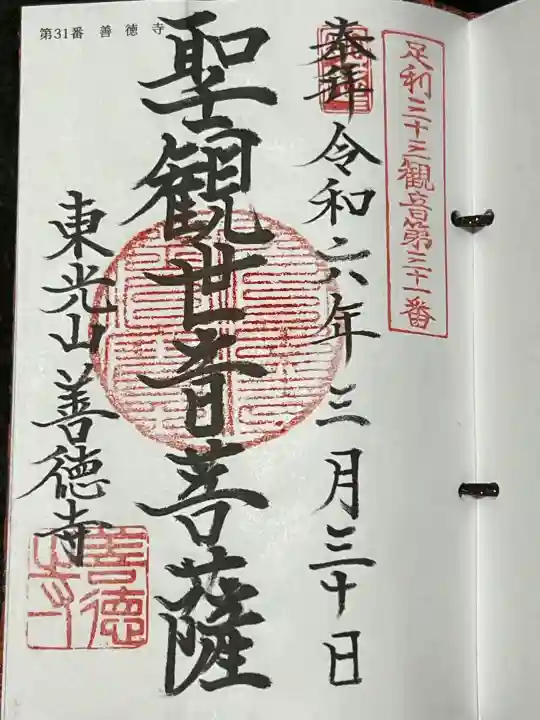 足利三十三観音第三十一番
奉拝 令和六年 三月三十日
聖観世音菩薩
東光山善徳寺
善徳寺
第31番 善徳寺